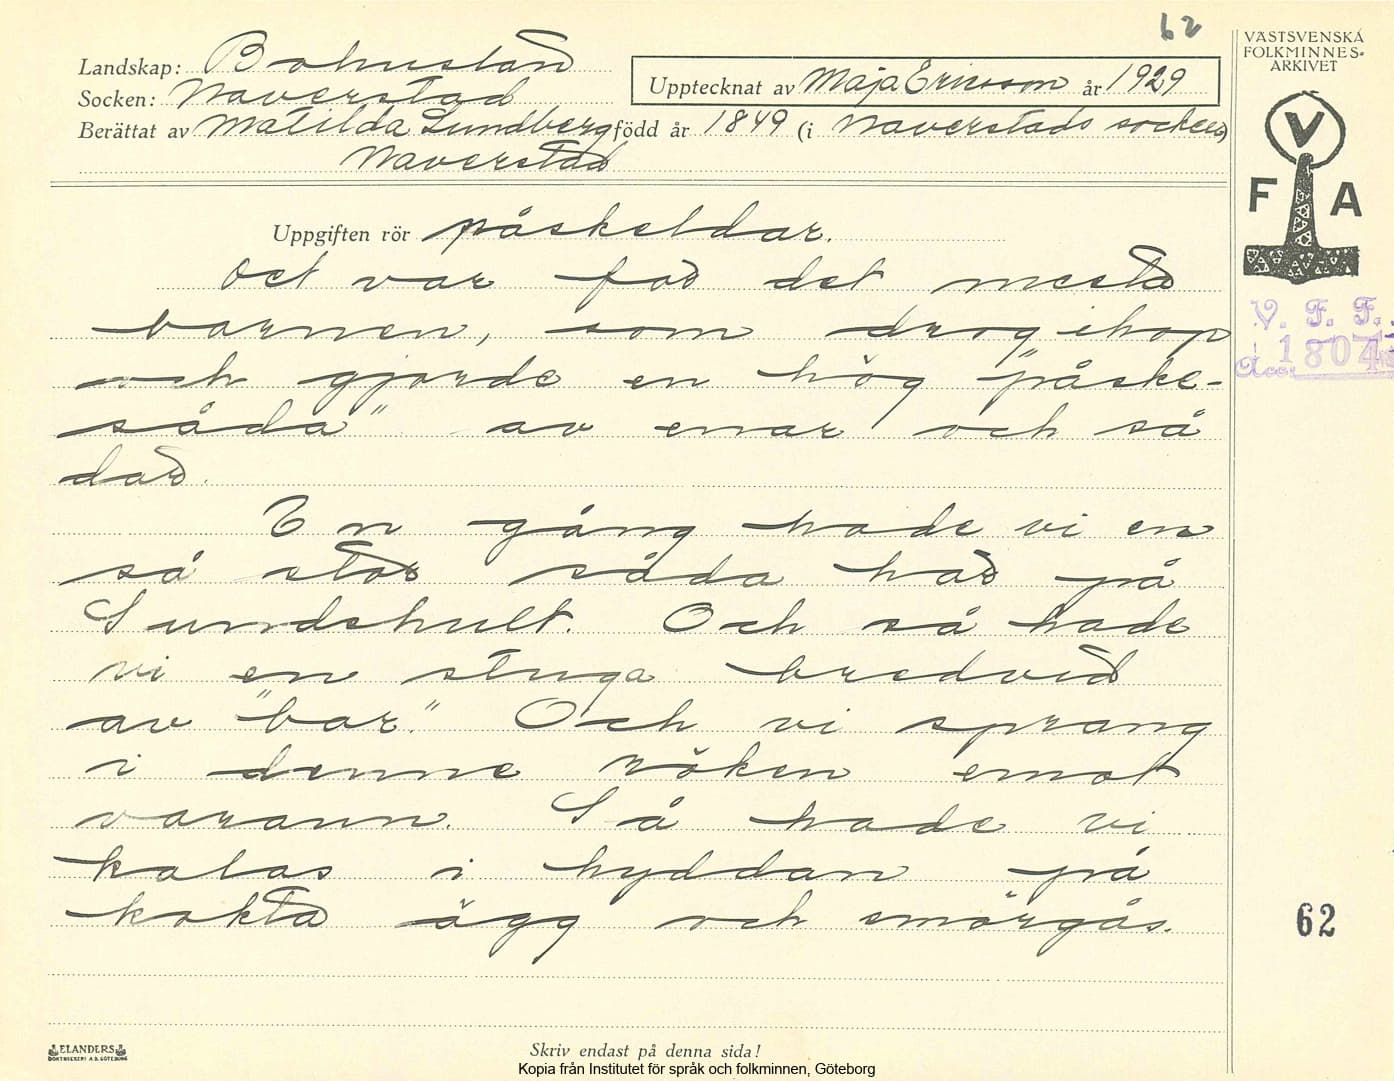 62
VÄSTSVENSKA
FOLKMINNES-
ARKIVET
Landskap: Bohuslän
Socken: Naverstad
Upptecknat av Maja Ericsson år 1929
Berättat av Matilda Lundberg född år 1849 (i Naverstads socken)
Naverstad
V
F A
Uppgiften rör påskeldar.
Det var för det mesta
barnen, som drog ihop
och gjorde en hög "påske-
såda" av enar och så
där.
En gång hade vi en
så stor såda här på
Sundshult. Och så hade
vi en stuga bredvid
av "bar". Och vi sprang
i denne röken emot
varann. Så hade vi
kalas i hyddan på
kokta ägg och smörgås.
V. F. F.
Acc. 1804
62
ELANDERS
BOKTRYCKERI A.B. GÖTEBORG
Skriv endast på denna sida!
Kopia från Institutet för språk och folkminnen, Göteborg